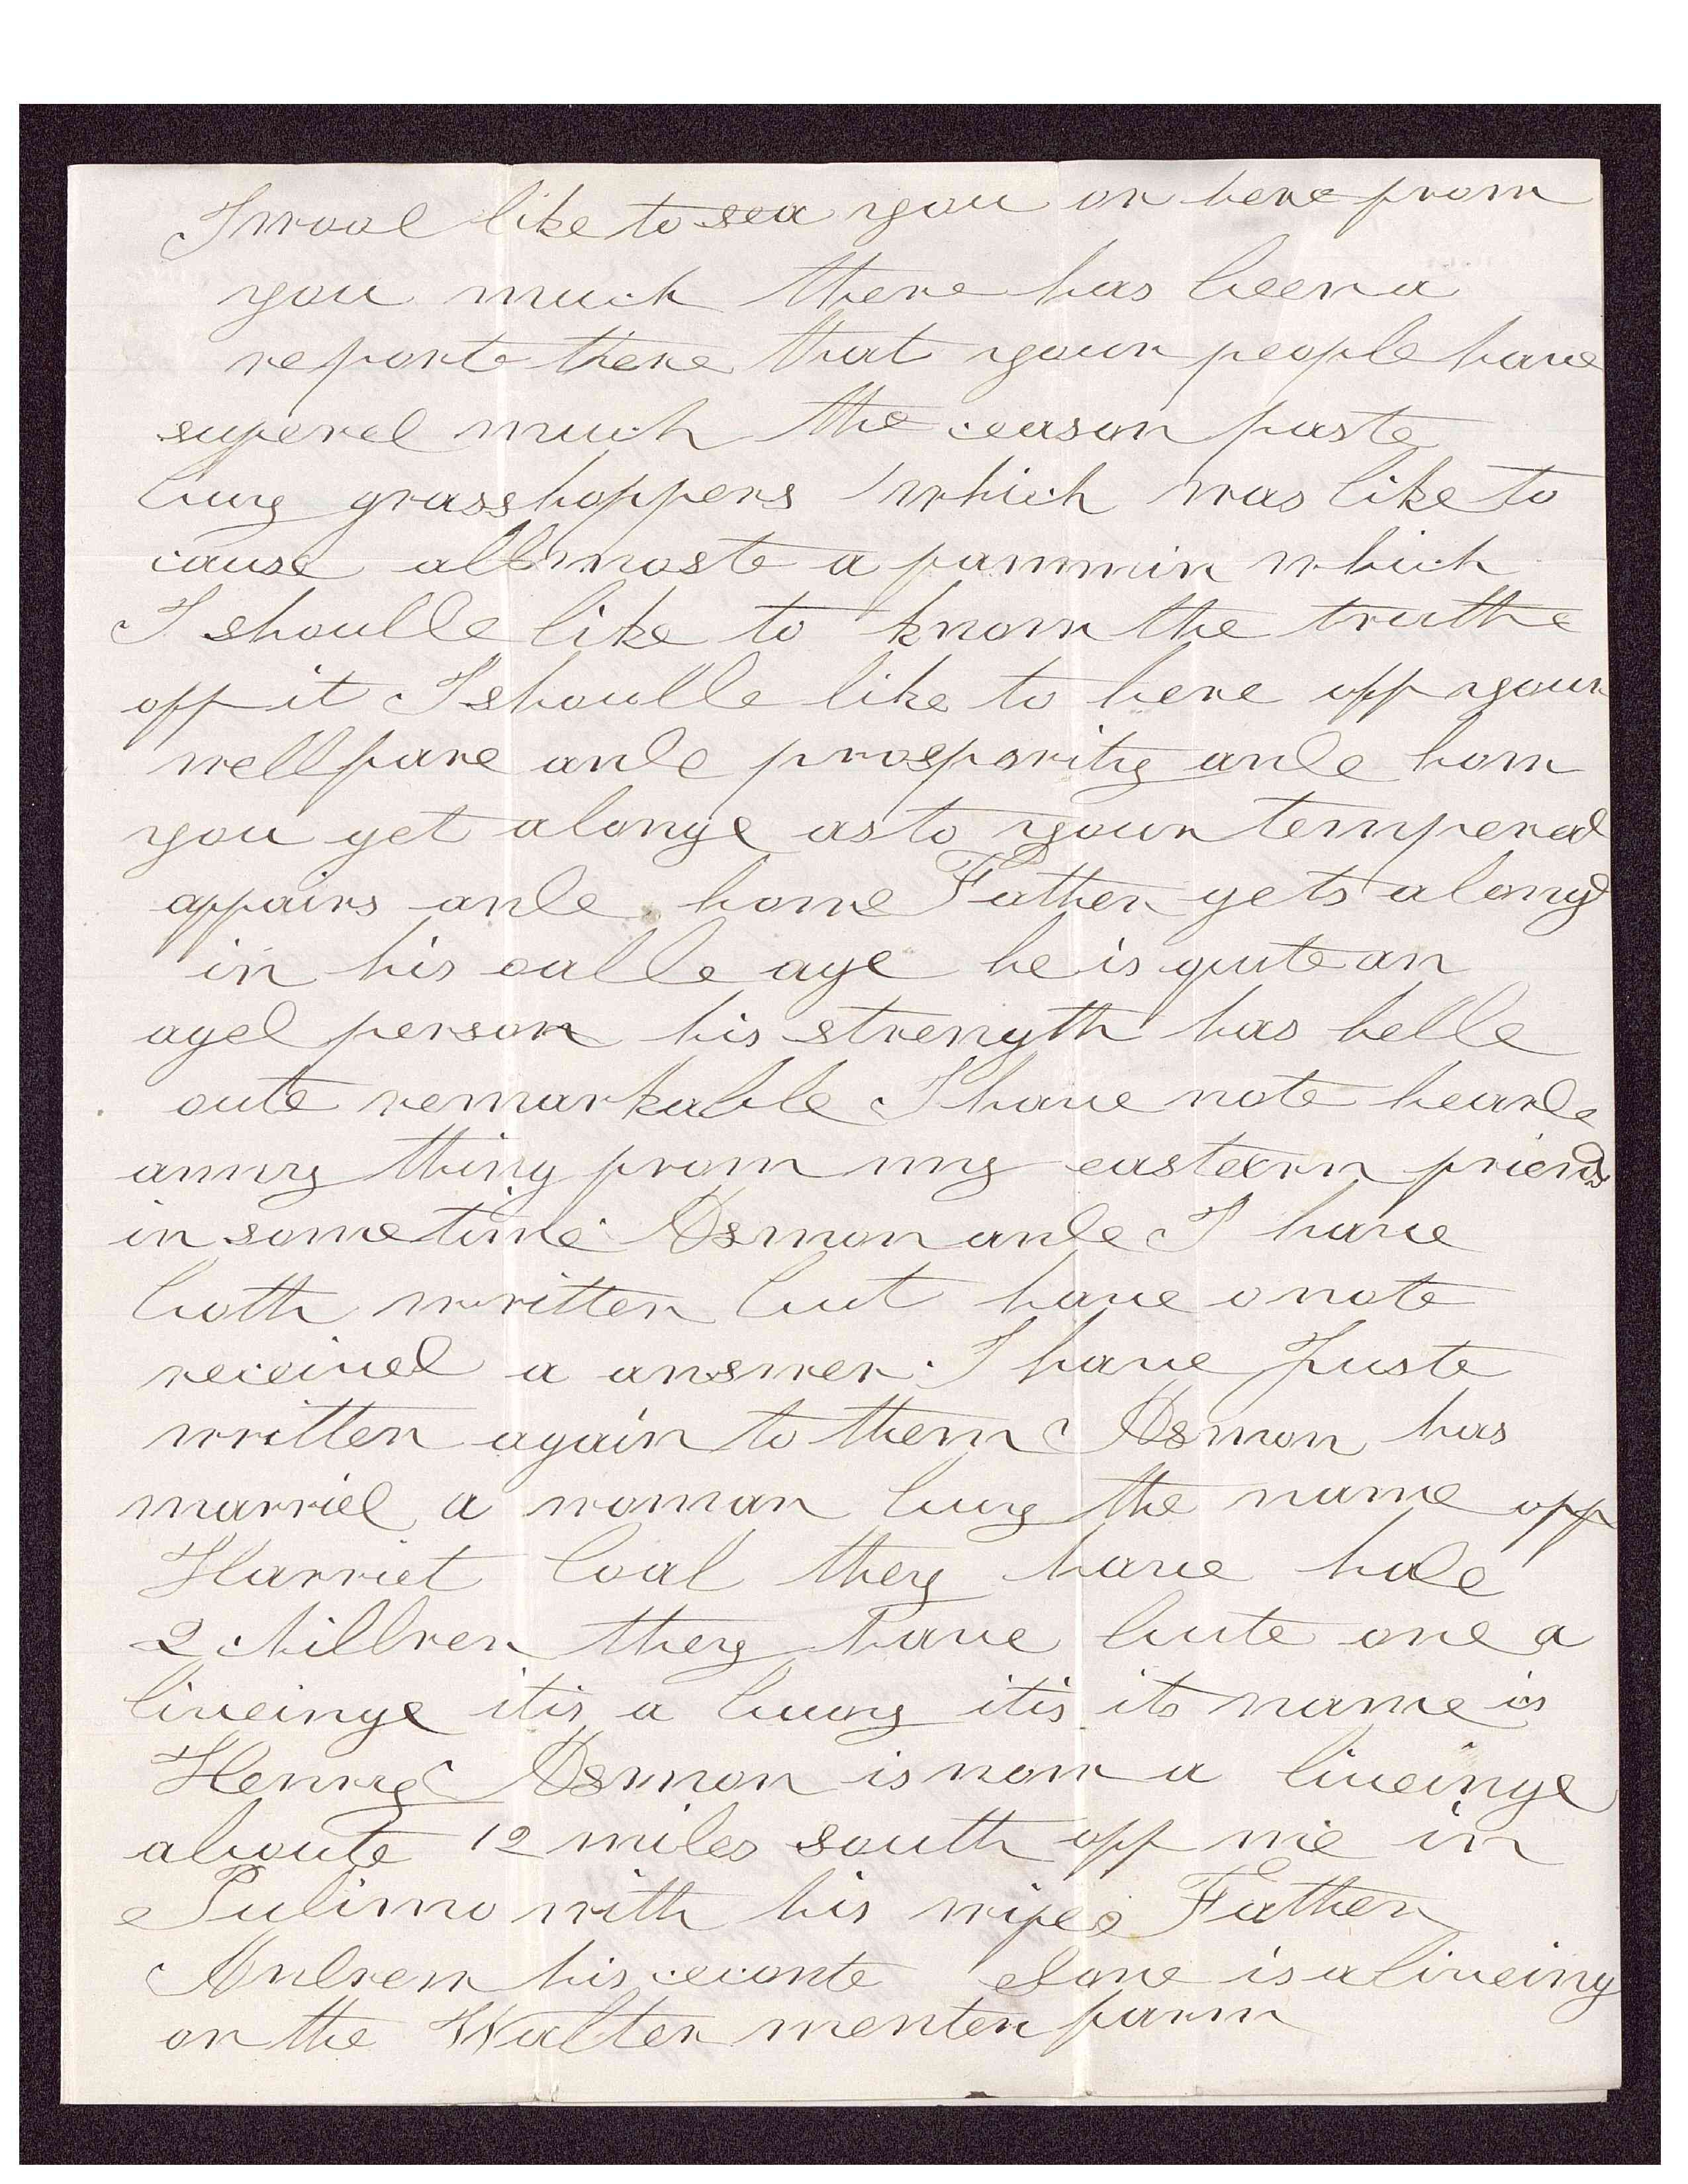 I wood like to sea you or here from
you much there has been a
reporte there that your people have
sufered much the ceason paste
buy grasshoppers which was like to
cause allmoste a fammin which
I shoulde like to know the truthe
off it I shoulde like to here off your
wellfare ande prosparity ande how
you get alonge as to your temperal
affairs ande howe Father gets alonge
in his oalde age he is quite an
aged person his strength has helde
oute remarkable I have note hearde
anny thing from my eastern friends
in some time Osmon ande I have
both written but have note
received a answer. I have juste
written again to them Osmon has
married a woman buy the name off
Harriet they have hade
2 children they have bute one a
liveinge itis a buoy itis its name is
Henry Osmon is now a liveinge
aboute 12 miles south off me in
with his wifes Father
Andrew his ceconte Sone is a liveing
on the Walter farm